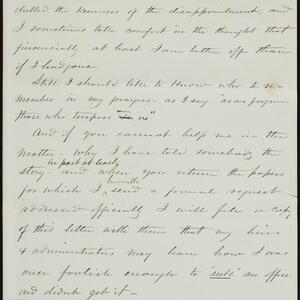 dulled the keenness of the disappointment, and
I sometimes take comfort in the thought that
financially at least I am better off than
if I had gone.
Still I should like to know who to re-
member in my prayers. as I say "as we forgive
those who trespass In us"
And if you cannot help me in the
matter – why I have told somebody the
in part at least
story – and when you return the papers
herewith
for which I send a formal request
addressed officially I will file a copy
of this letter with them that my heirs
& administrators may learn how I was
once foolish enough to "seek" an office
and didnt get it –